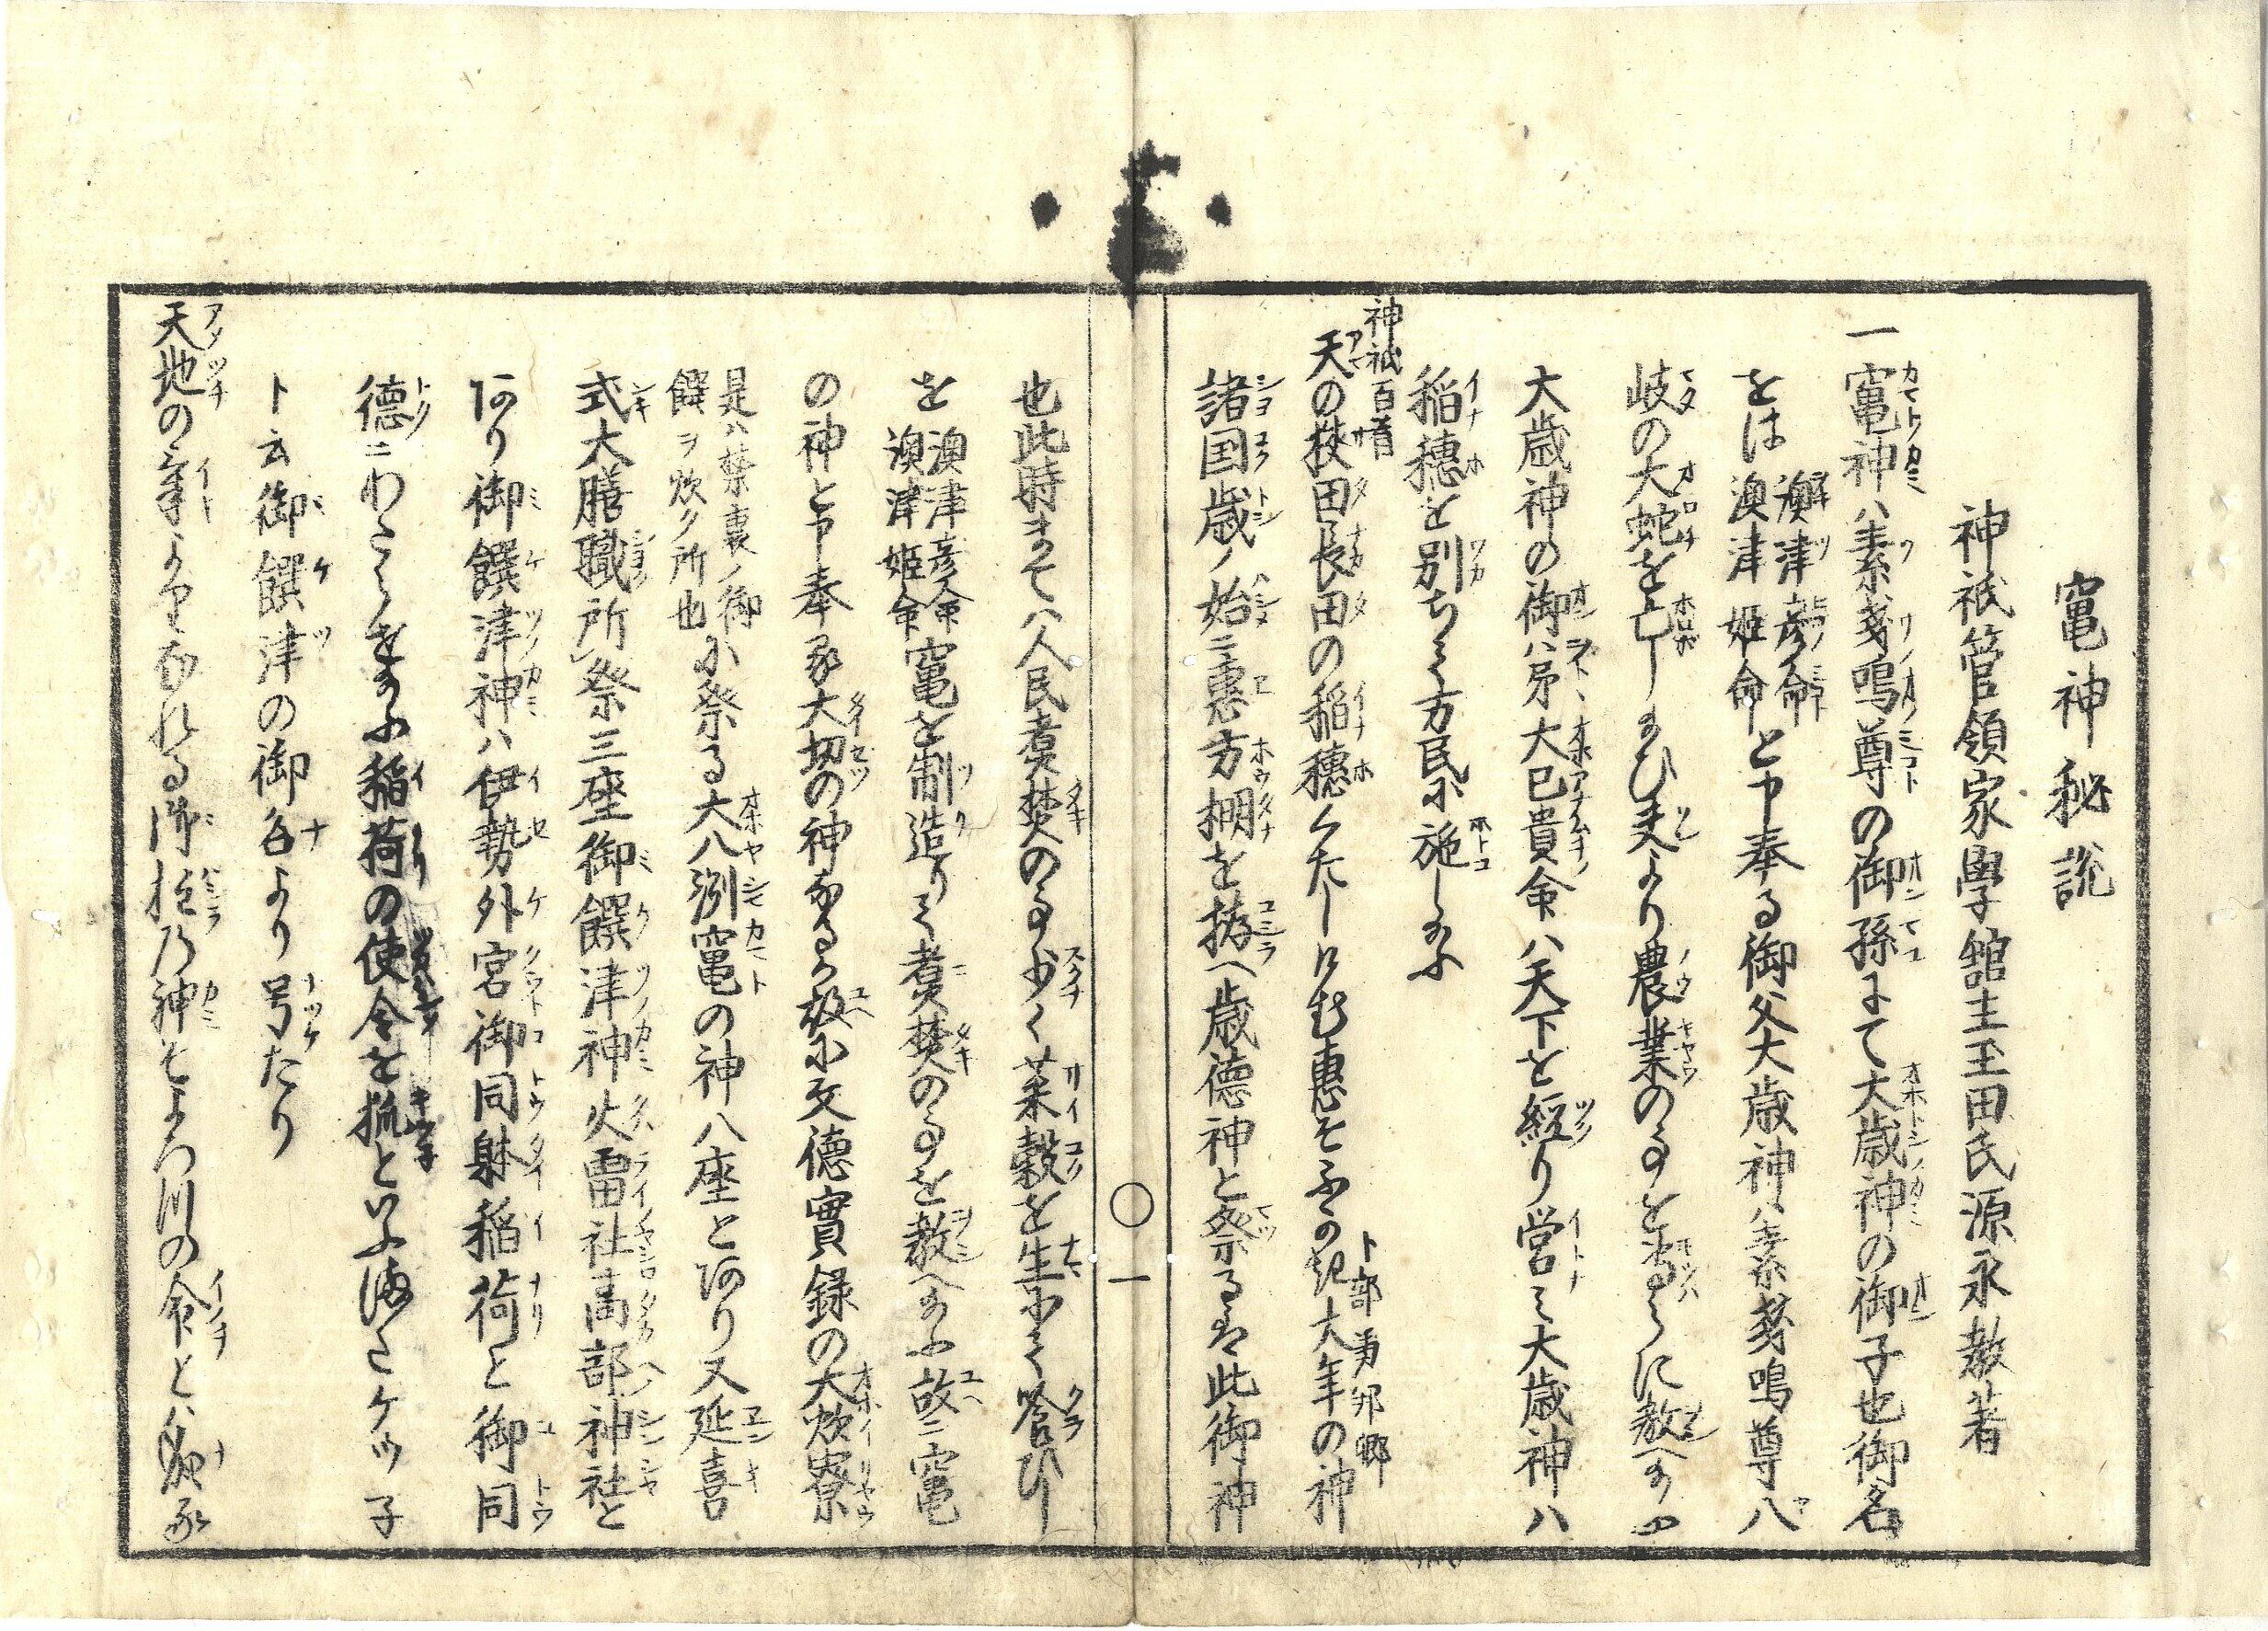 竃神秘説
神祇管領家學舘主玉田氏源永教著
一竃神ハ素戔嗚尊の御孫にて大歳神の御子也御名
をは澳津彦命澳津姫命と申奉る御父大歳神ハ素戔嗚尊八
岐の大蛇を亡し夫より農業の事を教へ
大歳神の御弟大巳貴命ハ天下を経り営ミ大歳神ハ
稲穂を別ちて万民に施し
神祇百首
天の狭田長田の稲穂
卜部勇邦郷
大年の神
諸国歳ノ始ニ恵方棚を拵へ歳徳神と祭るは此御神
也此時まてハ人民煮焚の事少く菓穀を生にて喰ひし
を澳津彦命澳津姫命竃を制造りて煮焚の事を教へ故ニ竃
の神と申奉る大切の神なる故に文徳實録の大炊寮
是ハ禁裏ノ御
饌ヲ炊ク所也に祭る大八洲竃の神八座とあり又延喜
式大膳職所祭三座御饌津神火雷社高部神社と
あり御饌津神ハ伊勢外宮御同躰稲荷と御同
徳ニわたらせ給ふ稲荷の使令を狐といふ海ミケツ子
ト云御饌津の御名より号たり
天地の神そよろ川の命とハ